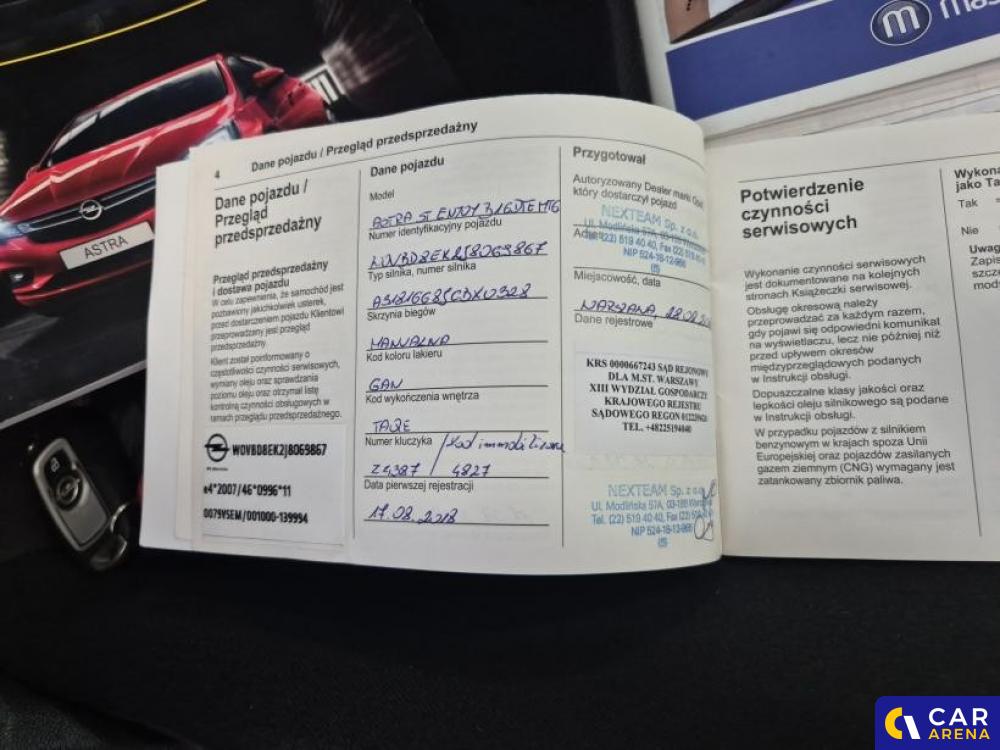 ASTRA
4 Dane pojazdu / Przegląd przedsprzedażny
Dane pojazdu /
Przegląd
przedsprzedażny
Przegląd przedsprzedażny
i dostawa pojazdu
W celu zapewnienia, że samochód jest
pozbawiony jakichkolwiek usterek,
przed dostarczeniem pojazdu Klientowi
przeprowadzany jest przegląd
przedsprzedażny.
Klient został poinformowany o
częstotliwości czynności serwisowych,
wymiany oleju oraz sprawdzania
poziomu oleju oraz otrzymał listę
kontrolną czynności obsługowych w
ramach przeglądu przedsprzedażnego.
W0VBD8EK2J8069867
e4*2007/46*0996*11
0079VSEM/001000-139994
Dane pojazdu
Model
ASTRA ST ENJOY B16DTE MT6
Numer identyfikacyjny pojazdu
W0VBD8EK2J8069867
Typ silnika, numer silnika
Skrzynia biegów
MANUALNA
Kod koloru lakieru
GAN
Kod wykończenia wnętrza
TAQE
Numer kluczyka / kod immobilizera
Z4387 / 4827
Data pierwszej rejestracji
17.08.2018
Przygotował
Autoryzowany Dealer marki Opel
który dostarczył pojazd
NEXTEAM Sp. z o.o.
Ul. Modlińska 57A, 03-199
Adres
Tel. (22) 519 40 40, Fax (22) 519
NIP 524-18-12-966
(5)
Miejscowość, data
WARSZAWA, 18.08
Dane rejestrowe
KRS 0000667243 SĄD REJONOWY
DLA M.ST. WARSZAWY
XIII WYDZIAŁ GOSPODARCZY
KRAJOWEGO REJESTRU
SĄDOWEGO REGON
TEL. +48225194040
NEXTEAM Sp. z o.o.
Ul. Modlińska 57A, 03-199
Tel. (22) 519 40 40, Fax (22)
NIP 524-18-12-966
(5)
Potwierdzenie
czynności
serwisowych
Wykonanie czynności serwisowych
jest dokumentowane na kolejnych
stronach Książeczki serwisowej.
Obsługę okresową należy
przeprowadzać za każdym razem,
gdy pojawi się odpowiedni komunikat
na wyświetlaczu, lecz nie później niż
przed upływem okresów
międzyprzeglądowych podanych
w Instrukcji obsługi.
Dopuszczalne klasy jakości oraz
lepkości oleju silnikowego są podane
w Instrukcji obsługi.
W przypadku pojazdów z silnikiem
benzynowym w krajach spoza Unii
Europejskiej oraz pojazdów zasilanych
gazem ziemnym (CNG) wymagany jest
zatankowany zbiornik paliwa.
Wykona
jako Ta
Tak
Nie
Uwag
Zapis
szcze
mod
CAR
ARENA